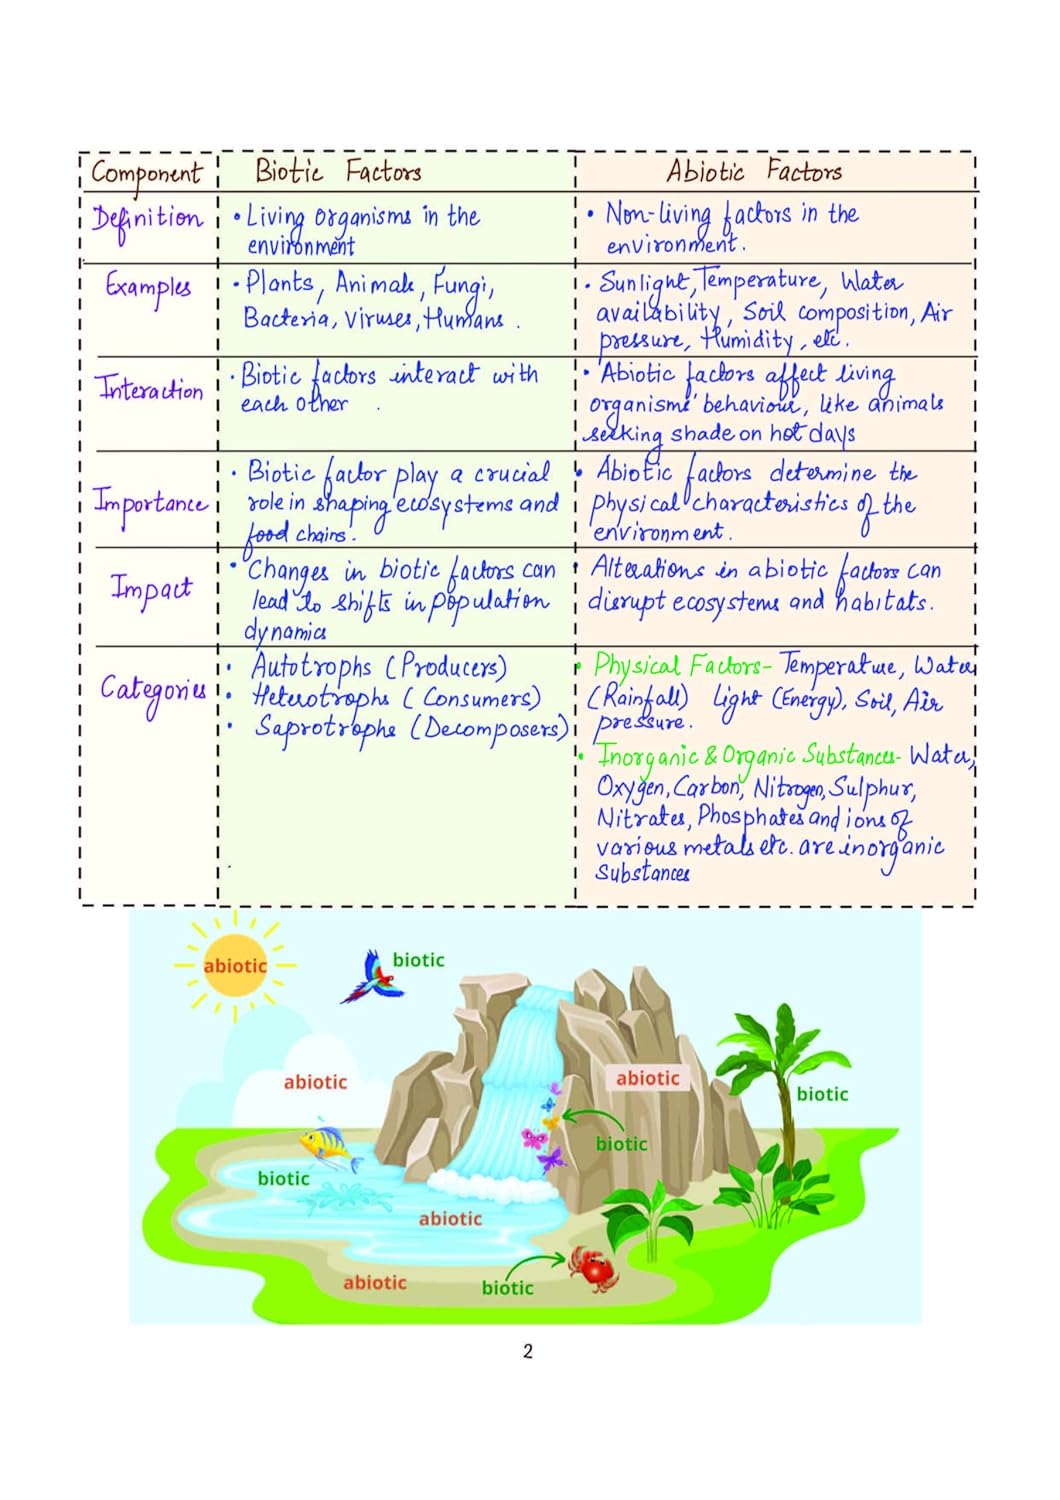 Component Biotic Factors Abiotic Factors
Definition
• Living organisms in the
environment
• Non-living factors in the
environment.
Examples
• Plants, Animals, Fungi,
Bacteria, Viruses, Humans.
• Sunlight, Temperature, Water
availability, Soil composition, Air
pressure, Humidity, etc.
Interaction
• Biotic factors interact with
each other.
• Abiotic factors affect living
organisms' behaviour, like animals
seeking shade on hot days
Importance
• Biotic factor play a crucial
role in shaping ecosystems and
food chains.
• Abiotic factors determine the
physical characteristics of the
environment.
Impact
• Changes in biotic factors can
lead to shifts in population
dynamics
• Alterations in abiotic factors can
disrupt ecosystems and habitats.
Categories
• Autotrophs (Producers)
• Heterotrophs (Consumers)
• Saprotrophs (Decomposers)
• Physical Factors- Temperature, Water
(Rainfall) Light (Energy), Soil, Air
pressure.
• Inorganic & Organic Substances- Water,
Oxygen, Carbon, Nitrogen, Sulphur,
Nitrates, Phosphates and ions of
various metals etc. are inorganic
Substances
abiotic
biotic
abiotic
abiotic
biotic
biotic
biotic
abiotic
abiotic
biotic
2